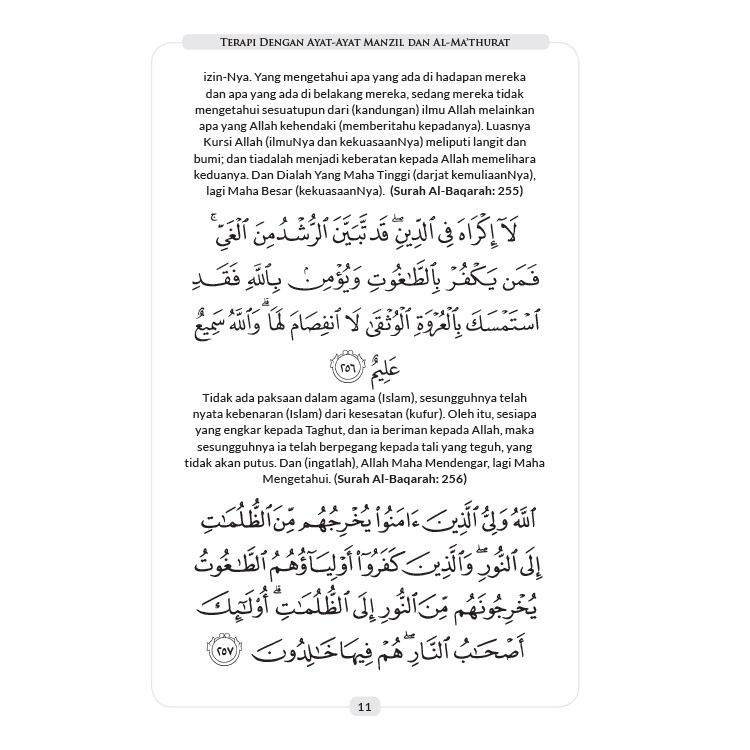 TERAPI DENGAN AYAT-AYAT MANZIL DAN AL-MA'THURAT
izin-Nya. Yang mengetahui apa yang ada di hadapan mereka
dan apa yang ada di belakang mereka, sedang mereka tidak
mengetahui sesuatupun dari (kandungan) ilmu Allah melainkan
apa yang Allah kehendaki (memberitahu kepadanya). Luasnya
Kursi Allah (ilmuNya dan kekuasaanNya) meliputi langit dan
bumi; dan tiadalah menjadi keberatan kepada Allah memelihara
keduanya. Dan Dialah Yang Maha Tinggi (darjat kemuliaanNya),
lagi Maha Besar (kekuasaanNya). (Surah Al-Baqarah: 255)
لَآ إِكْرَاهَ فِى ٱلدِّينِ ۖ قَد تَّبَيَّنَ ٱلرُّشْدُ مِنَ ٱلْغَىِّ ۚ
فَمَن يَكْفُرْ بِٱلطَّـٰغُوتِ وَيُؤْمِنۢ بِٱللَّهِ فَقَدِ
ٱسْتَمْسَكَ بِٱلْعُرْوَةِ ٱلْوُثْقَىٰ لَا ٱنفِصَامَ لَهَا ۗ وَٱللَّهُ سَمِيعٌ
عَلِيمٌ ٢٥٦
Tidak ada paksaan dalam agama (Islam), sesungguhnya telah
nyata kebenaran (Islam) dari kesesatan (kufur). Oleh itu, sesiapa
yang engkar kepada Taghut, dan ia beriman kepada Allah, maka
sesungguhnya ia telah berpegang kepada tali yang teguh, yang
tidak akan putus. Dan (ingatlah), Allah Maha Mendengar, lagi Maha
Mengetahui. (Surah Al-Baqarah: 256)
ٱللَّهُ وَلِىُّ ٱلَّذِينَ ءَامَنُوا۟ يُخْرِجُهُم مِّنَ ٱلظُّلُمَـٰتِ
إِلَى ٱلنُّورِ ۖ وَٱلَّذِينَ كَفَرُوٓا۟ أَوْلِيَآؤُهُمُ ٱلطَّـٰغُوتُ
يُخْرِجُونَهُم مِّنَ ٱلنُّورِ إِلَى ٱلظُّلُمَـٰتِ ۗ أُو۟لَـٰٓئِكَ
أَصْحَـٰبُ ٱلنَّارِ ۖ هُمْ فِيهَا خَـٰلِدُونَ ٢٥٧
11